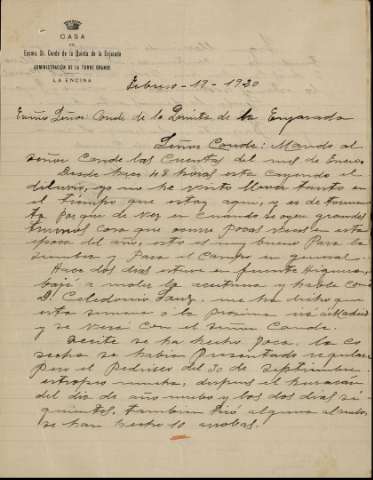 CASA
DEL
Excmo. Sr. Conde de la Quinta de la Enjarada
ADMINISTRACION DE LA TORRE GRANDE
LA ENCINA
Febrero - 19 - 1930
Exmo Señor Conde de la Quinta de la Enjarada
Señor Conde: Mando al
señor conde las cuentas del mes de Enero.
Desde hace 48 horas esta cayendo el
diluvio, yo no he visto llover tanto en
el tiempo que estoy aqui, y es de tormen
ta porque de vez en cuando se oyen grandes
truenos cosa que ocurre pocas veces en esta
epoca del año, esto es muy bueno para la
siembra y para el campo en general.
Hace dos dias estuve en fuente
baje a moler la aceituna y hable con
D. Caledonio Sanz, me ha dicho que
esta semana ó la proxima irá a Madrid
y se verá con el señor Conde.
Aceite se ha hecho poco, la co
secha se habia presentado regular
pero el pedrisco del 30 de septiembre
estropeo mucha, despues el huracán
del dia de año nuebo y los dos dias si
guientes, tambien tiró alguna al suelo,
se han hecho 10 arrobas.